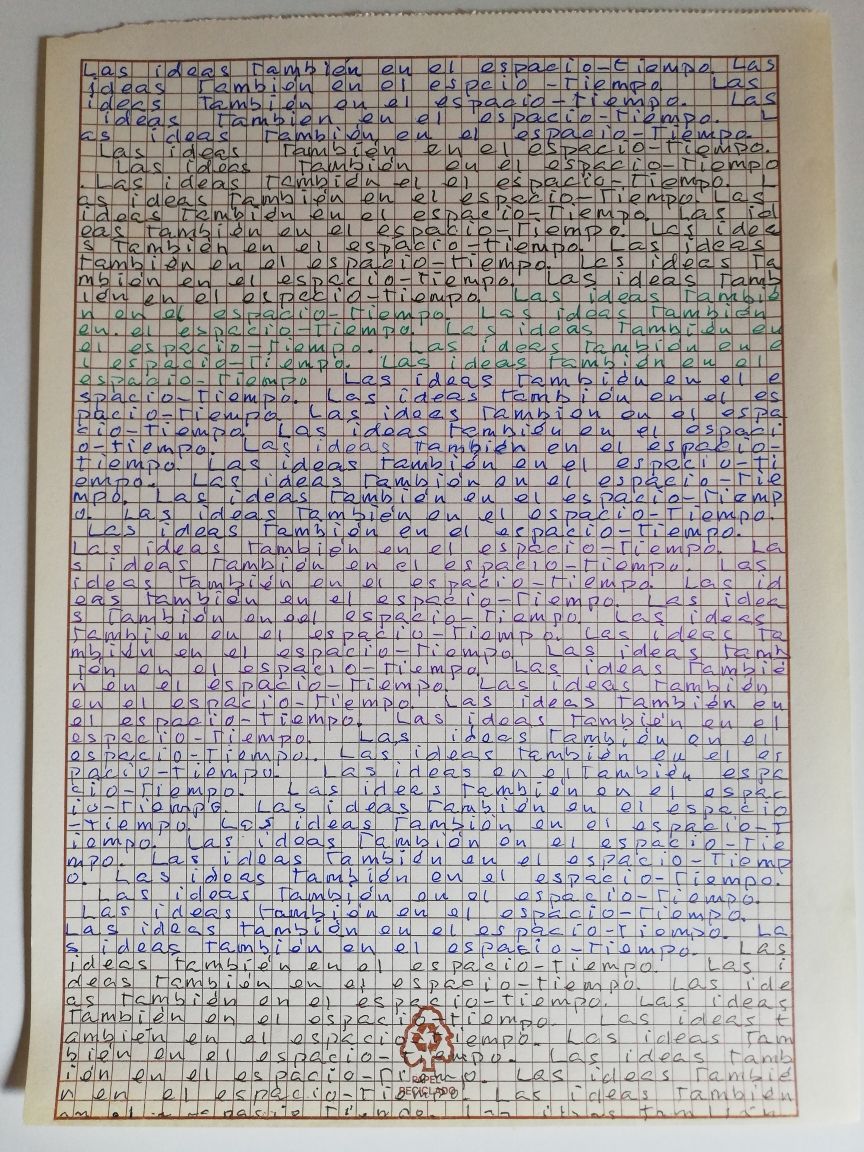 Las ideas También en el espacio-tiempo. Las
ideas También en el espcio-Tiempo Las
ideas También en el espacio-Tiempo. Las
ideas También en el espacio-Tiempo. L
as ideas También en el espacio-Tiempo.
Las ideas También en el espacio-Tiempo.
Las ideas También en el espacio-Tiempo
. Las ideas También el el espacio-Tiempo. L
as ideas También en el espacio-Tiempo. Las
ideas También en el espacio-Tiempo. Las id
eas También en el espacio-Tiempo. Las idea
s También en el espacio-tiempo. Las ideas
También en el espacio-Tiempo. Las ideas Ta
mbién en el espacio-Tiempo. Las ideas Tamb
ién en el espacio-Tiempo. Las ideas Tambié
n en el espacio-Tiempo. Las ideas También
en el espacio-Tiempo. Las ideas También en
el espacio-Tiempo. Las ideas También en e
l espacio-Tiempo. Las ideas También en el
espacio-Tiempo Las ideas También en el e
spacio-Tiempo. Las ideas También en el es
pacio-Tiempo. Las ideas También en el espa
cio-Tiempo. Las ideas También en el espaci
o-tiempo. Las ideas También en el espacio-
Tiempo. Las ideas También en el espacio-Ti
empo. Las ideas También en el espacio-Tie
mpo. Las ideas También en el espacio-Tiemp
o. Las ideas También en el espacio-Tiempo.
Las ideas También en el espacio-Tiempo.
Las ideas También en el espacio-Tiempo. La
s ideas También en el espacio-Tiempo. Las
ideas También en el espacio-Tiempo. Las id
eas También en el espacio-Tiempo. Las idea
s También en el espacio-Tiempo. Las ideas
También en el espacio-Tiempo. Las ideas Ta
mbién en el espacio-Tiempo. Las ideas Tamb
ién en el espacio-Tiempo. Las ideas Tambié
n en el espacio-Tiempo. Las ideas También
en el espacio-Tiempo. Las ideas También en
el espacio-Tiempo. Las ideas También en el
espacio-Tiempo. Las ideas También en el
espacio-Tiempo.. Las ideas También en el es
pacio-Tiempo. Las ideas en el También espa
cio-Tiempo. Las ideas También en el espac
io-Tiempo. Las ideas También en el espacio
-tiempo. Las ideas También en el espacio-T
iempo. Las ideas También en el espacio-Tie
mpo. Las ideas También en el espacio-Tiemp
o. Las ideas También en el espacio-Tiempo.
Las ideas También en el espacio-Tiempo.
Las ideas También en el espacio-Tiempo.
Las ideas También en el espacio-Tiempo. La
s ideas También en el espacio-Tiempo. Las
ideas También en el espacio-Tiempo. Las i
deas También en el espacio-Tiempo. Las ide
as También en el espacio-Tiempo. Las ideas
También en el espacio-Tiempo. Las ideas t
ambién en el espacio-Tiempo. Las ideas Tam
bién en el espacio-Tiempo. Las ideas Tamb
ién en el espacio-Tiempo. Las ideas Tambié
PAPEL
RECICLADO
n en el espacio-Tiempo. Las ideas También